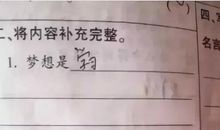 二、将内容补充完整。
四、
1. 梦想是
名言